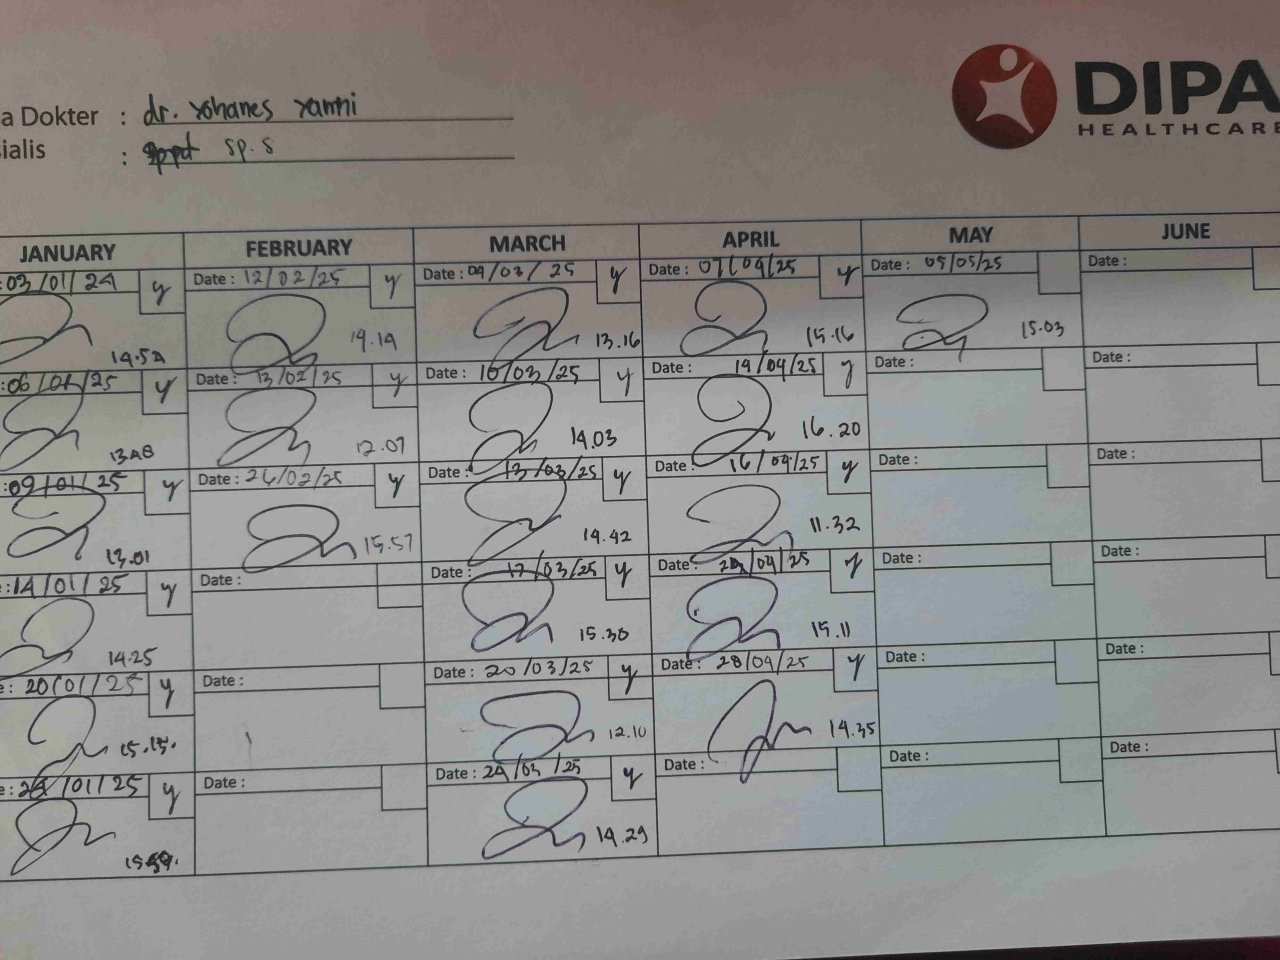 DIPA
HEALTHCARE
a Dokter : dr. Yohanes Yanni
ialis : sp.s
JANUARY FEBRUARY MARCH APRIL MAY JUNE
: 03/01/24 y Date : 12/02/25 y Date : 04/03/25 y Date : 07/04/25 y Date : 05/05/25 Date :
14.52 14.14 13.16 15.16 15.03
: 06/01/25 y Date : 13/02/25 y Date : 10/03/25 y Date : 14/04/25 y Date : Date :
13.48 12.07 14.03 16.20
: 09/01/25 y Date : 26/02/25 y Date : 13/03/25 y Date : 16/04/25 y Date : Date :
13.01 15.57 14.42 11.32
: 14/01/25 y Date : Date : 17/03/25 y Date : /04/25 y Date : Date :
14.25 15.30 15.11
e : 20/01/25 y Date : Date : 20/03/25 y Date : 28/04/25 y Date : Date :
15.15. 12.10 14.35
e : /01/25 y Date : Date : 24/03/25 y Date : Date : Date :
14.29